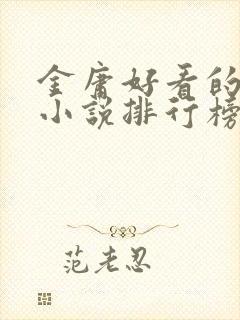 金庸好看的
小说排行榜
范老忍